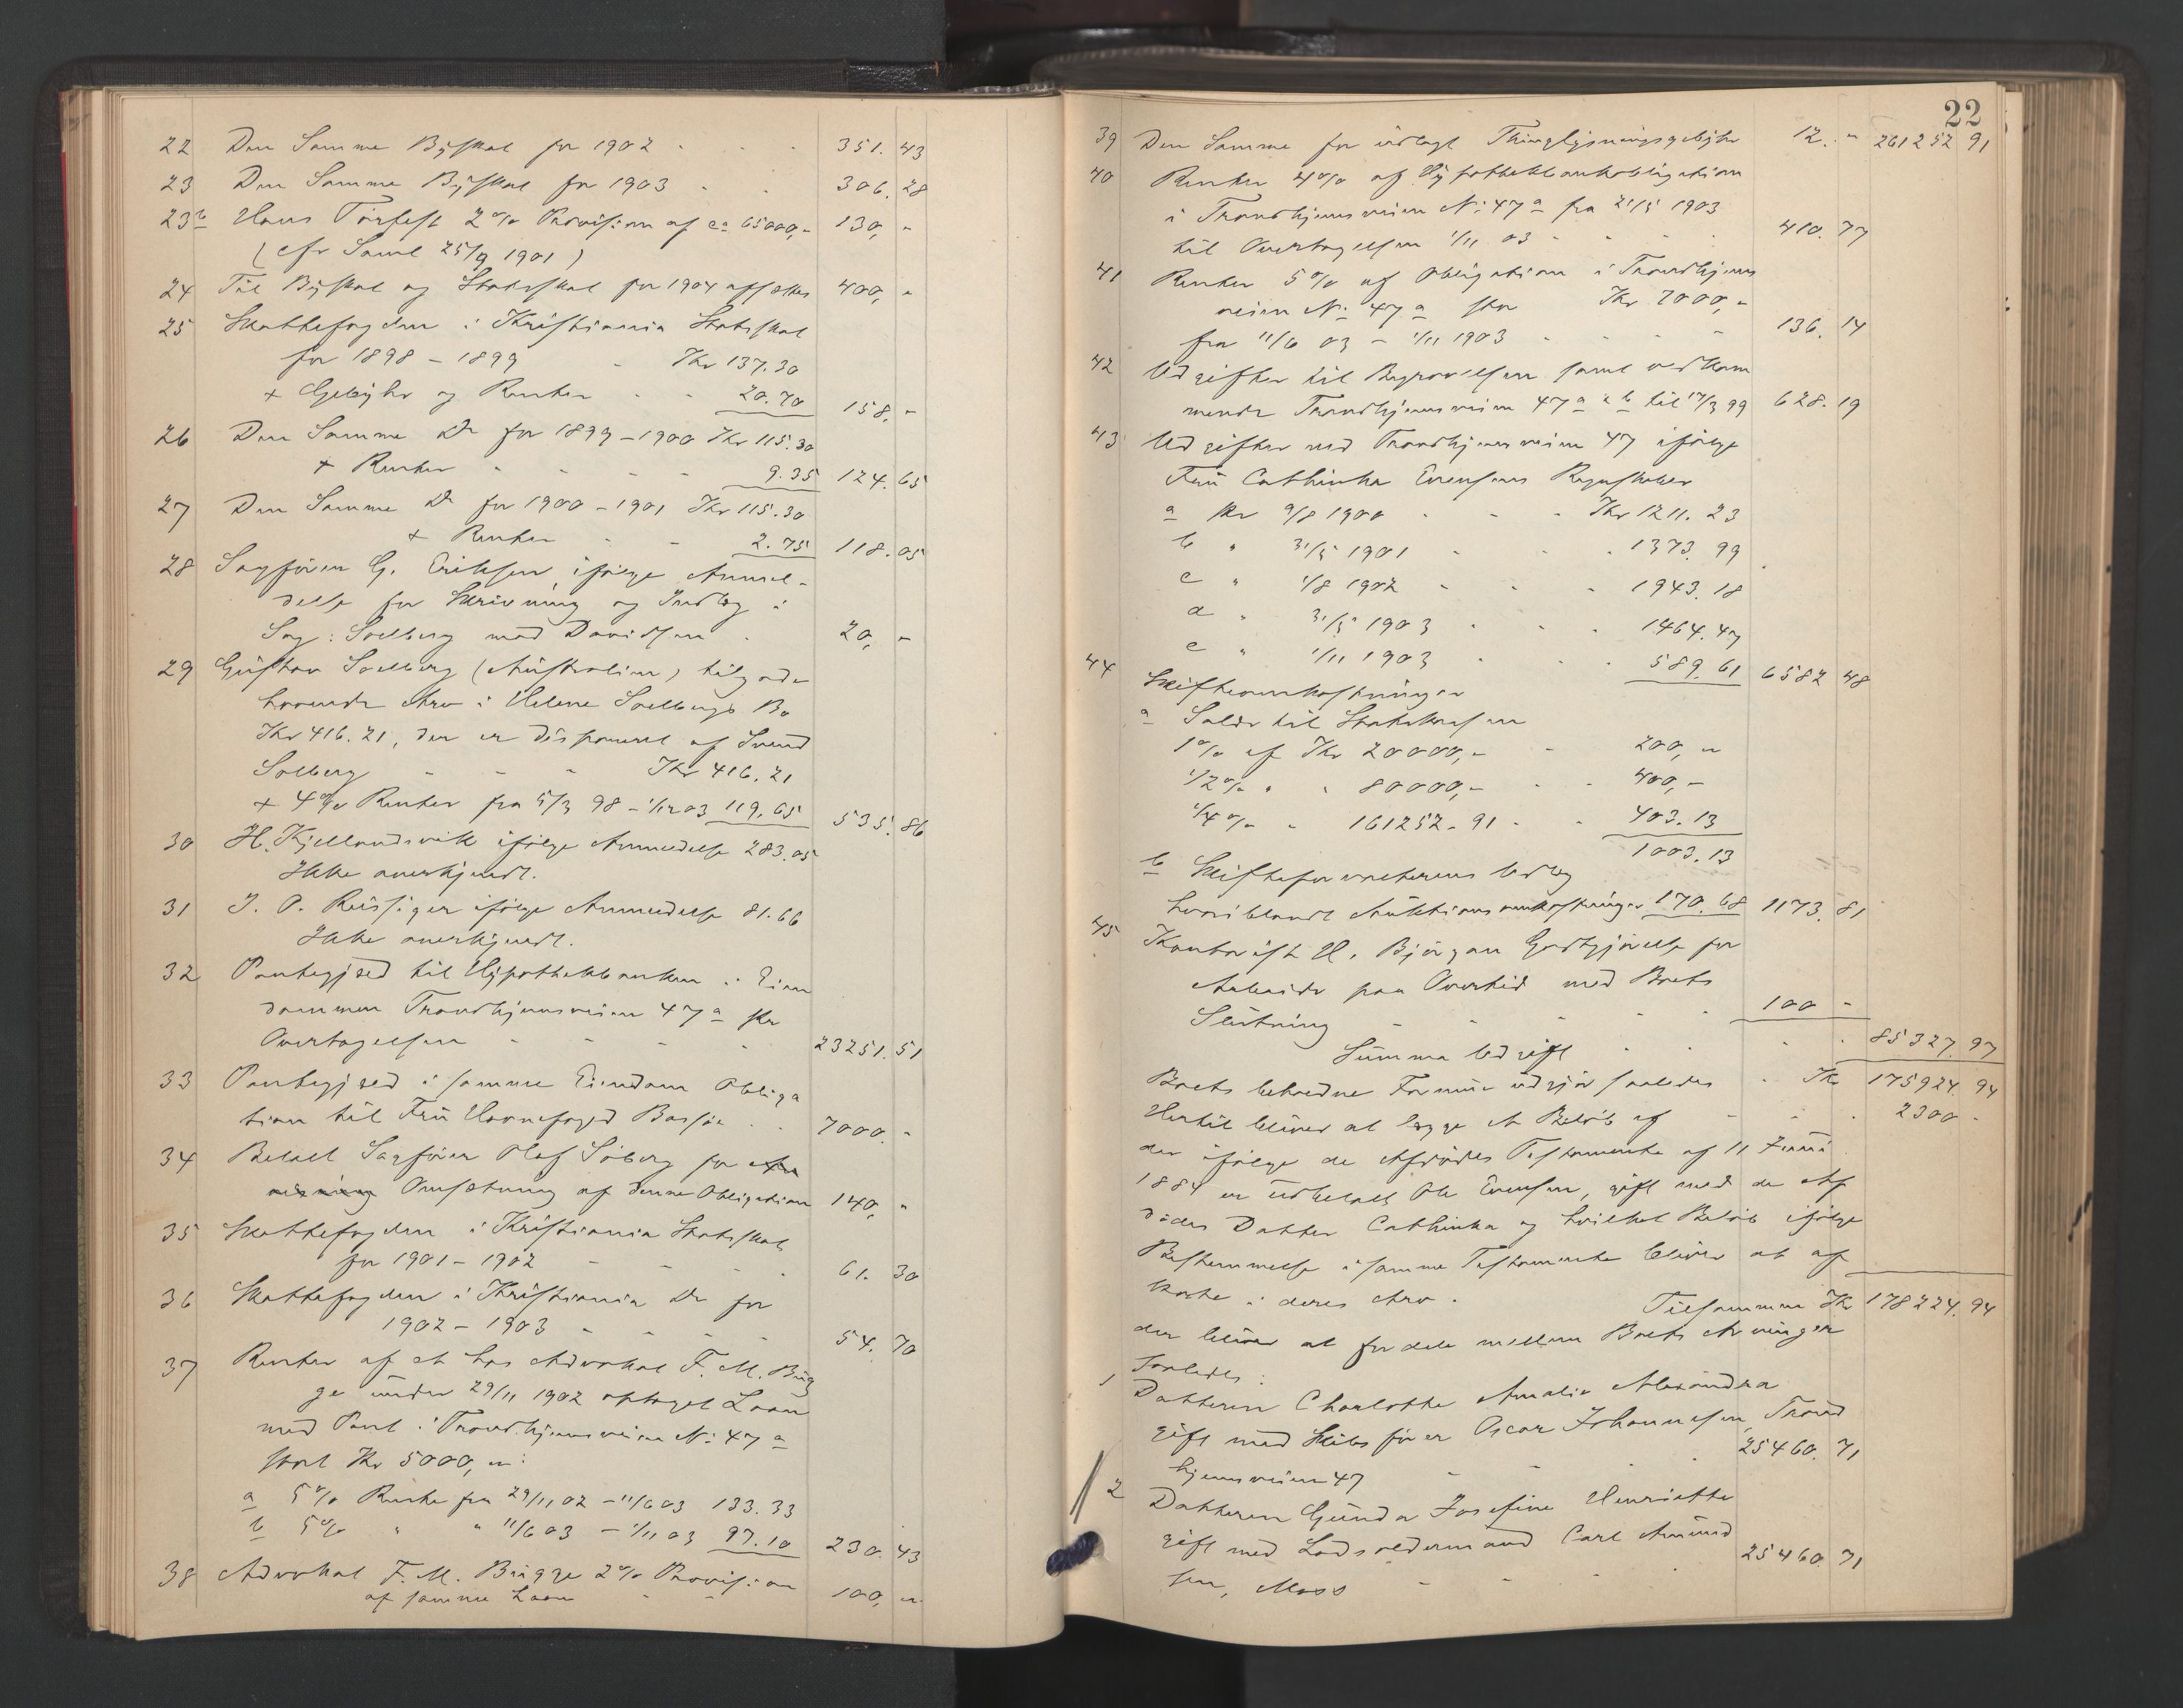 22 Den Samme Byskat for 1902 - - - 351. 43
23 Den Samme Byskat for 1903 - - 306. 28
23b Hans Torfest 2% Provision af ca 65000,- 130, -
(cfr Saml 25/9 1901)
24 Til Byskat og Statsskat for 1904 afsættes 400, -
25 Skattefogden i Kristiania Statsskat
for 1898 - 1899 - Kr 137.30
+ Gebyhr og Renter - - 20.70 158, -
26 Den Samme Do for 1899-1900 Kr 115.30
+ Renter - - - - 9.35 124. 65
27 Den Samme Do for 1900-1901 Kr 115.30
+ Renter - - 2.75 118. 05
28 Sagfører G. Eriksen ifølge Anmel-
delse for Skrivning og Indlæg i
Sag: Soelberg mod Davidsen - 20, -
29 Gustav Soelberg (Australien) tilgode
havende Arv i Helene Soelbergs Bo
Kr 416.21, der er disponeret af Svend
Solberg - - - Kr 416.21
+ 4% Renter fra 5/3 98 - 1/12 03 119.65 535. 86
30 H. Kjellandsvik ifølge Anmeldelse 283.05
Ikke anerkjendt.
31 J. O. Reissiger ifølge Anmeldelse 81.66
Ikke anerkjendt.
32 Pantegjæld til Hypothekbanken i Eien
dommen Trondhjemsveien 47a pr
Overtagelsen - - - - 23251. 51
33 Pantegjæld i samme Eiendom Obliga
tion til Fru Havnefoged Bassøe - - 7000. -
34 Betalt Sagfører Olaf Søberg for
Omsetning af denne Obligation 140, -
35 Skattefogden i Kristiania Statsskat
for 1901-1902 - - - - 61. 30
36 Skattefogden i Kristiania Do for
1902-1903 - - - - 54. 70
37 Renter af et hos Advokat F. M. Büg
ge under 29/11 1902 optaget Laan
mod Pant i Trondhjemsveien No 47a
stort Kr 5000, -:
a 5% Rente fra 29/11 02 - 11/6 03 133.33
b 5% " " 11/6 03 - 1/11 03 97.10 230. 43
38 Advokat F. M. Bügge 2% Provision
af samme Laan - - 100, -
22
39 Den Samme for udlagt Thinglysningsgebyhr 12. - 261252 91
40 Renter 4% af Hypothekbankobligation
i Trondhjemsveien No 47a fra 21/5 1903
til Overtagelsen 1/11 03 - - - - 410. 77
41 Renter 5% af Obligation i Trondhjems
veien No 47a stor Kr 7000,-
fra 11/6 03 - 1/11 1903 - - - - 136. 14
42 Udgifter til Begravelsen samt vedkom
mende Trondhjemsveien 47a & b til 17/3 99 628. 19
43 Udgifter ved Trondhjemsveien 47 ifølge
Fru Cathinka Evensens Regnskaber
a pr 9/8 1900 - - - Kr 1211. 23
b " 31/5 1901 - - - 1373. 99
c " 1/8 1902 - - - 1943. 18
d " 31/5 1903 - - - 1464. 47
e " 1/11 1903 - - - 589. 61 6582 48
44 Skifteomkostninger
a Saldo til Statskassen
1% af Kr 20000,- - 200, -
1/2% " " 80000,- - - 400, -
1/4% " 161252. 91 - - 403. 13
1003. 13
b Skifteforvalterens Udlæg
hvoriblandt Auktionsomkostninger 170. 68 1173. 81
45 Kontorist H. Bjørgan Godtgjørelse for
Arbeide paa Overtid med Boets
Slutning - - - - - 100 -
Summa Udgift - - - 85327. 97
Boets beholdne Formue udgjør saaledes - Kr 175924. 94
Hertil bliver at lægge et Beløb af - - - 2300 -
der ifølge de Afdødes Testamente af 11 Juni
1884 er udbetalt Ole Evensen, gift med de Af
dødes Datter Cathinka og hvilket Beløb ifølge
Bestemmelse i samme Testamente bliver at af
korte i deres Arv.
Tilsammen Kr 178224. 94
der bliver at fordele mellem Boets Arvinger
saaledes:
1 Datteren Charlotte Amalie Alexandra
gift med Skibsfører Oscar Johannesen, Trond
hjemsveien 47 - - - 25460. 71
2 Datteren Gunda Josefine Henriette
gift med Lodsoldermand Carl Amund
sen, Moss - - - - 25460. 71